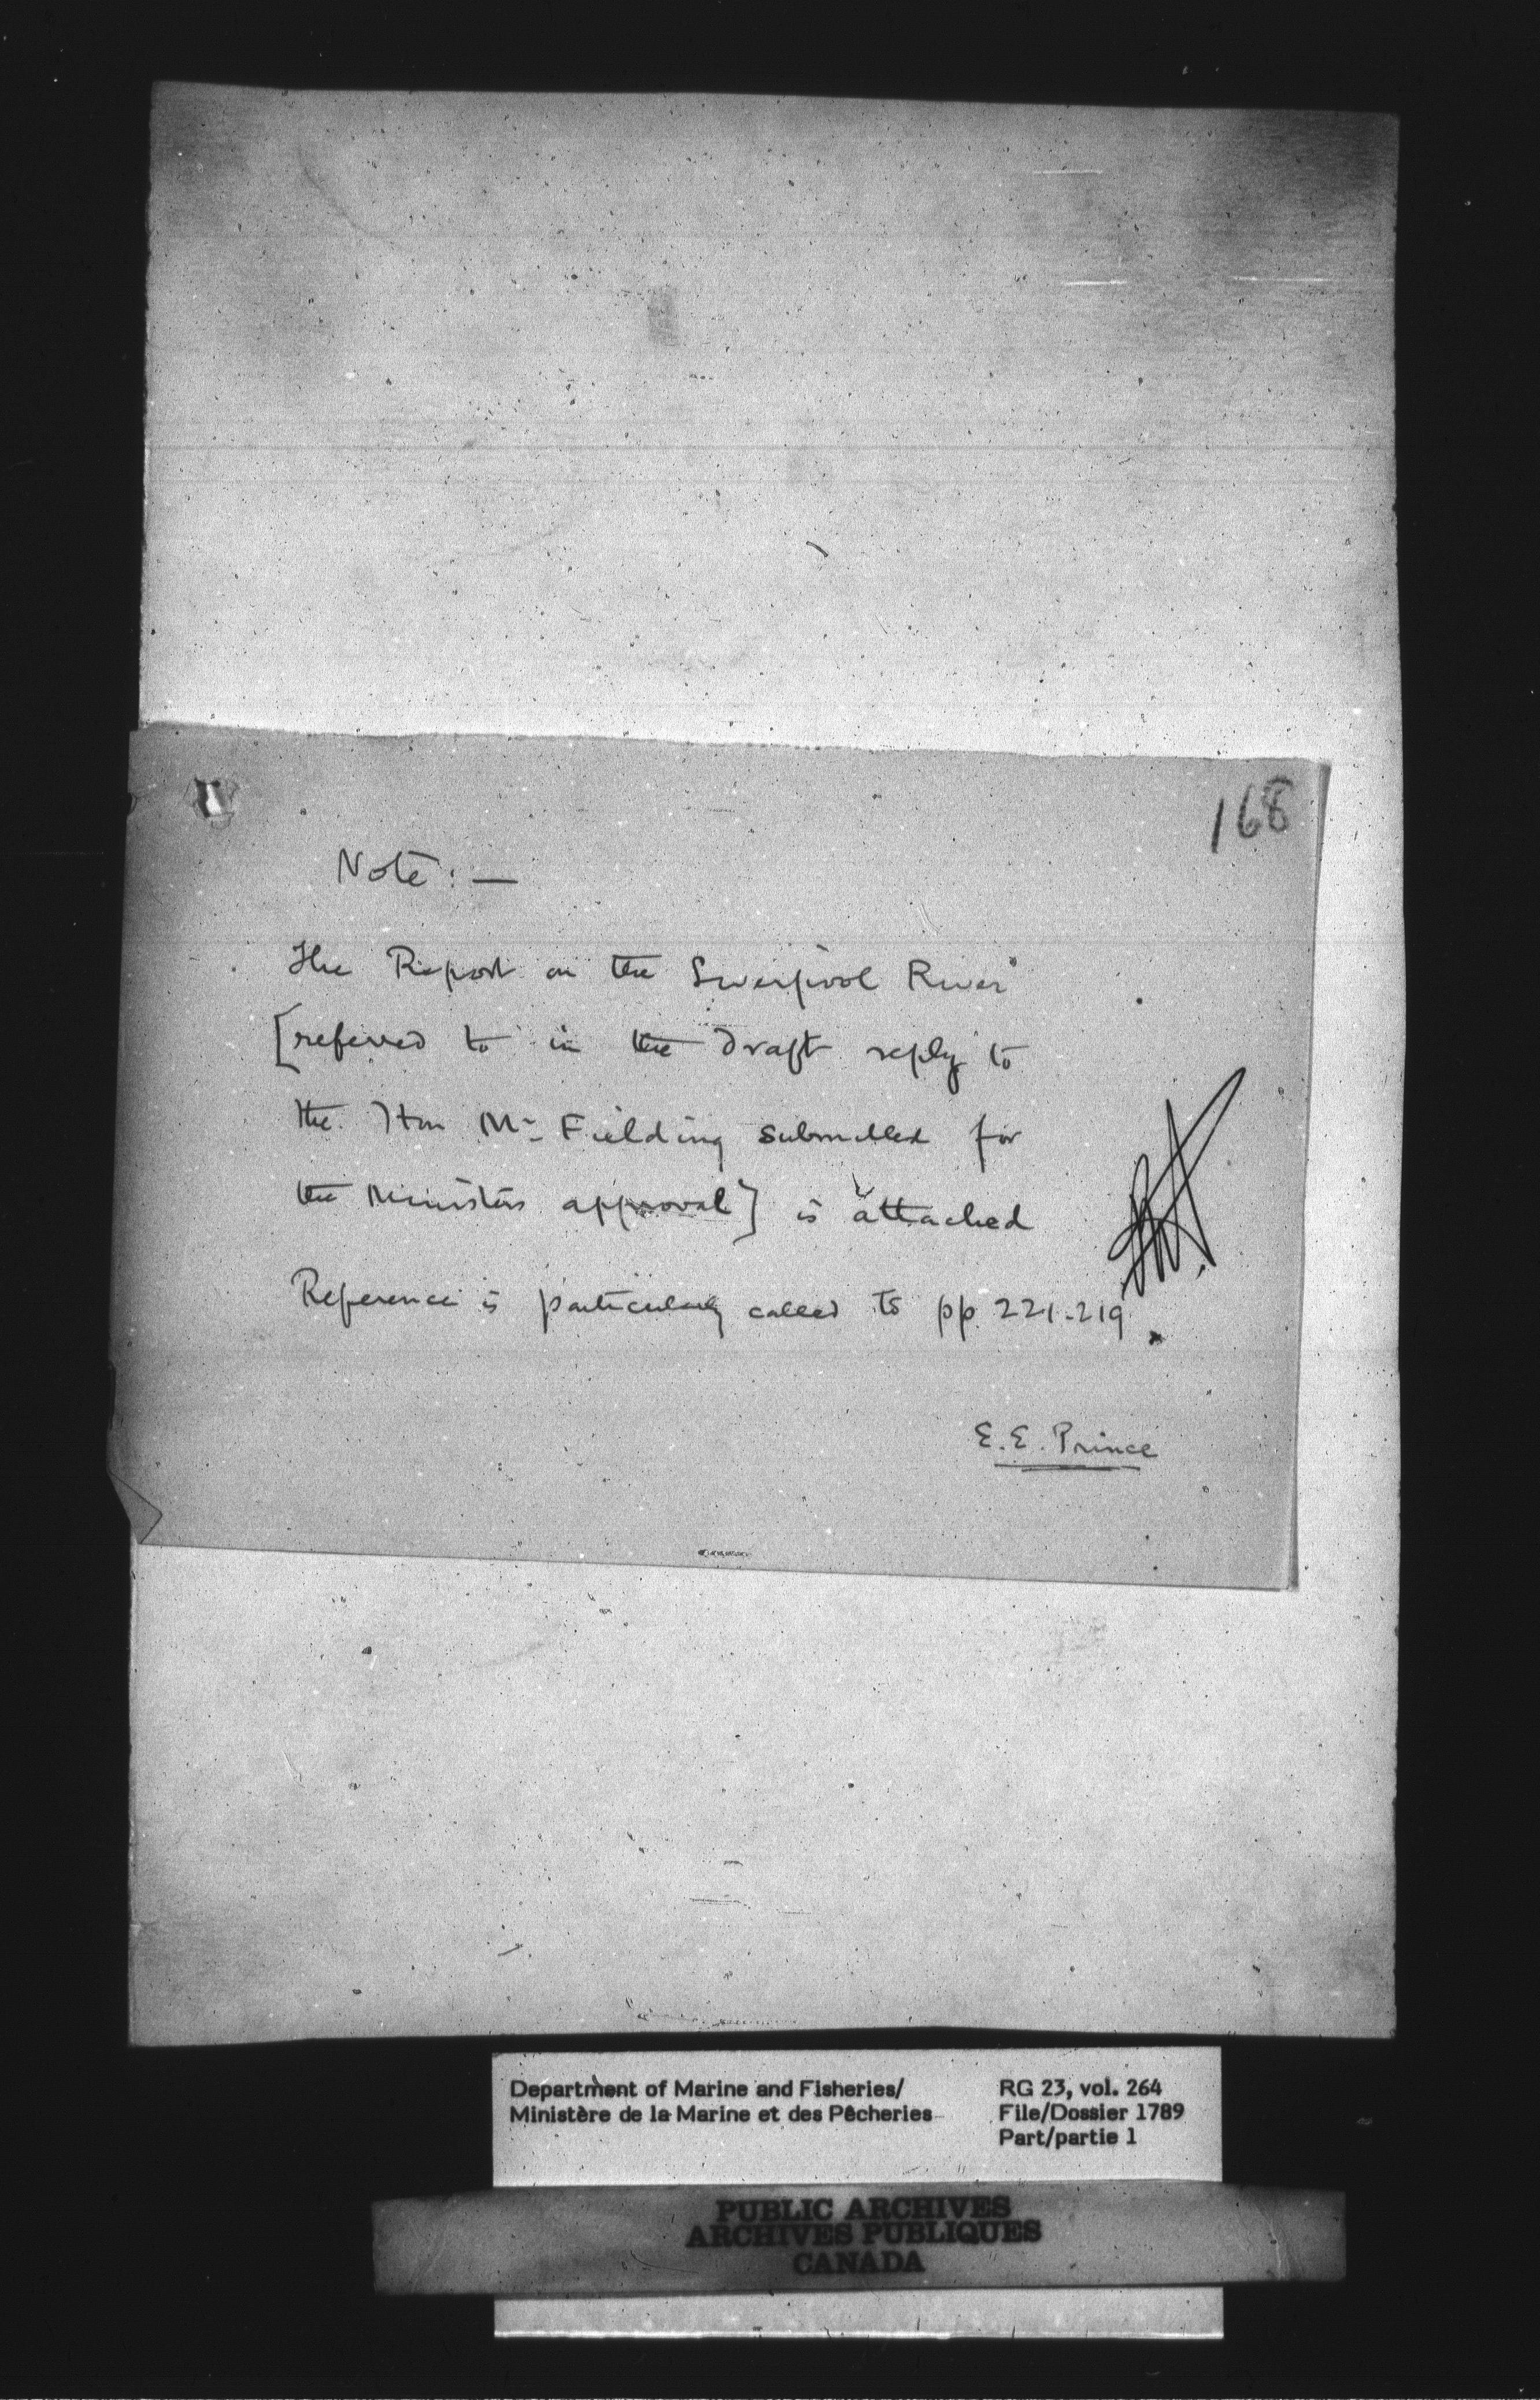 168
Note: —
The Report on the Liverpool River
[referred to in the draft reply to
the Hon Mr Fielding submitted for
the Ministers approval] is attached
Reference is particularly called to pp. 221-219.
E. E. Prince
Department of Marine and Fisheries/
Ministère de la Marine et des Pêcheries
RG 23, vol. 264
File/Dossier 1789
Part/partie 1
PUBLIC ARCHIVES
ARCHIVES PUBLIQUES
CANADA